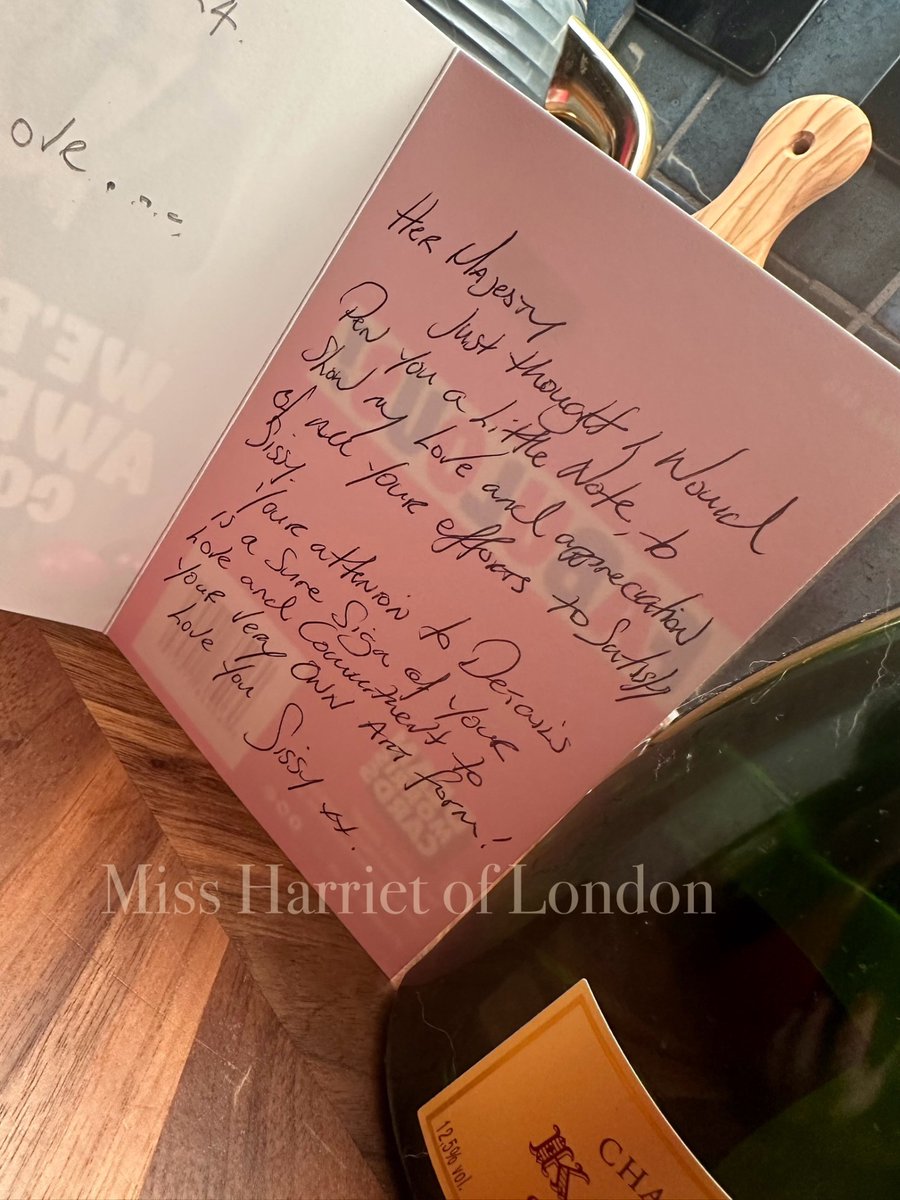 x.
ove.....,
WE'R
AWE
CO
Her Majesty
Just thought I would
Pen you a Little Note, to
Show my Love and appreciation
of all your efforts to Satisfy
Sissy.
Your attention to Details
is a Sure Sign of your
Love and Commitment to
your very own Art form!
Love you Sissy xx.
CARDS
Miss Harriet of London
CHA
12.5% vol.
K